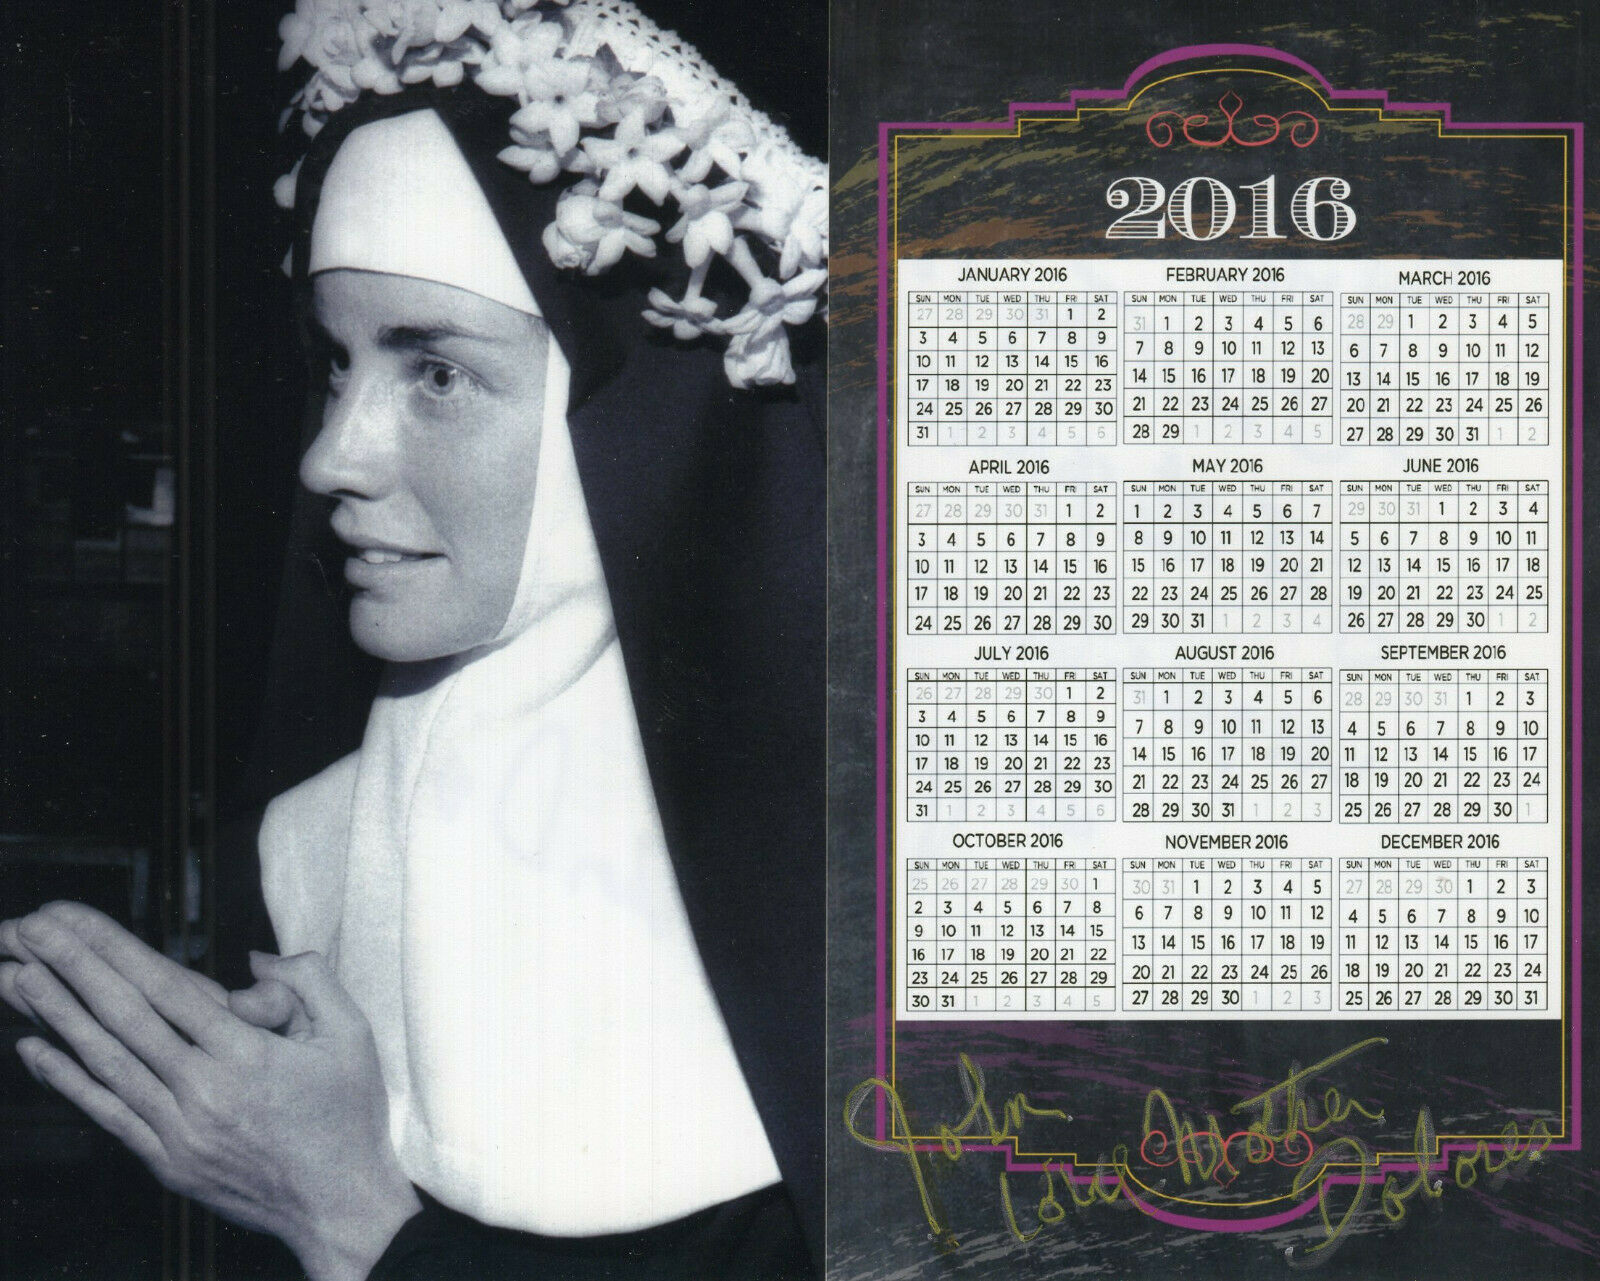 2016
JANUARY 2016
SUN MON TUE WED THU FRI SAT
27 28 29 30 31 1 2
3 4 5 6 7 8 9
10 11 12 13 14 15 16
17 18 19 20 21 22 23
24 25 26 27 28 29 30
31 1 2 3 4 5 6
FEBRUARY 2016
SUN MON TUE WED THU FRI SAT
31 1 2 3 4 5 6
7 8 9 10 11 12 13
14 15 16 17 18 19 20
21 22 23 24 25 26 27
28 29 1 2 3 4 5
MARCH 2016
SUN MON TUE WED THU FRI SAT
28 29 1 2 3 4 5
6 7 8 9 10 11 12
13 14 15 16 17 18 19
20 21 22 23 24 25 26
27 28 29 30 31 1 2
APRIL 2016
SUN MON TUE WED THU FRI SAT
27 28 29 30 31 1 2
3 4 5 6 7 8 9
10 11 12 13 14 15 16
17 18 19 20 21 22 23
24 25 26 27 28 29 30
MAY 2016
SUN MON TUE WED THU FRI SAT
1 2 3 4 5 6 7
8 9 10 11 12 13 14
15 16 17 18 19 20 21
22 23 24 25 26 27 28
29 30 31 1 2 3 4
JUNE 2016
SUN MON TUE WED THU FRI SAT
29 30 31 1 2 3 4
5 6 7 8 9 10 11
12 13 14 15 16 17 18
19 20 21 22 23 24 25
26 27 28 29 30 1 2
JULY 2016
SUN MON TUE WED THU FRI SAT
26 27 28 29 30 1 2
3 4 5 6 7 8 9
10 11 12 13 14 15 16
17 18 19 20 21 22 23
24 25 26 27 28 29 30
31 1 2 3 4 5 6
AUGUST 2016
SUN MON TUE WED THU FRI SAT
31 1 2 3 4 5 6
7 8 9 10 11 12 13
14 15 16 17 18 19 20
21 22 23 24 25 26 27
28 29 30 31 1 2 3
SEPTEMBER 2016
SUN MON TUE WED THU FRI SAT
28 29 30 31 1 2 3
4 5 6 7 8 9 10
11 12 13 14 15 16 17
18 19 20 21 22 23 24
25 26 27 28 29 30 1
OCTOBER 2016
SUN MON TUE WED THU FRI SAT
25 26 27 28 29 30 1
2 3 4 5 6 7 8
9 10 11 12 13 14 15
16 17 18 19 20 21 22
23 24 25 26 27 28 29
30 31 1 2 3 4 5
NOVEMBER 2016
SUN MON TUE WED THU FRI SAT
30 31 1 2 3 4 5
6 7 8 9 10 11 12
13 14 15 16 17 18 19
20 21 22 23 24 25 26
27 28 29 30 1 2 3
DECEMBER 2016
SUN MON TUE WED THU FRI SAT
27 28 29 30 1 2 3
4 5 6 7 8 9 10
11 12 13 14 15 16 17
18 19 20 21 22 23 24
25 26 27 28 29 30 31
John
Love Mother Dolores